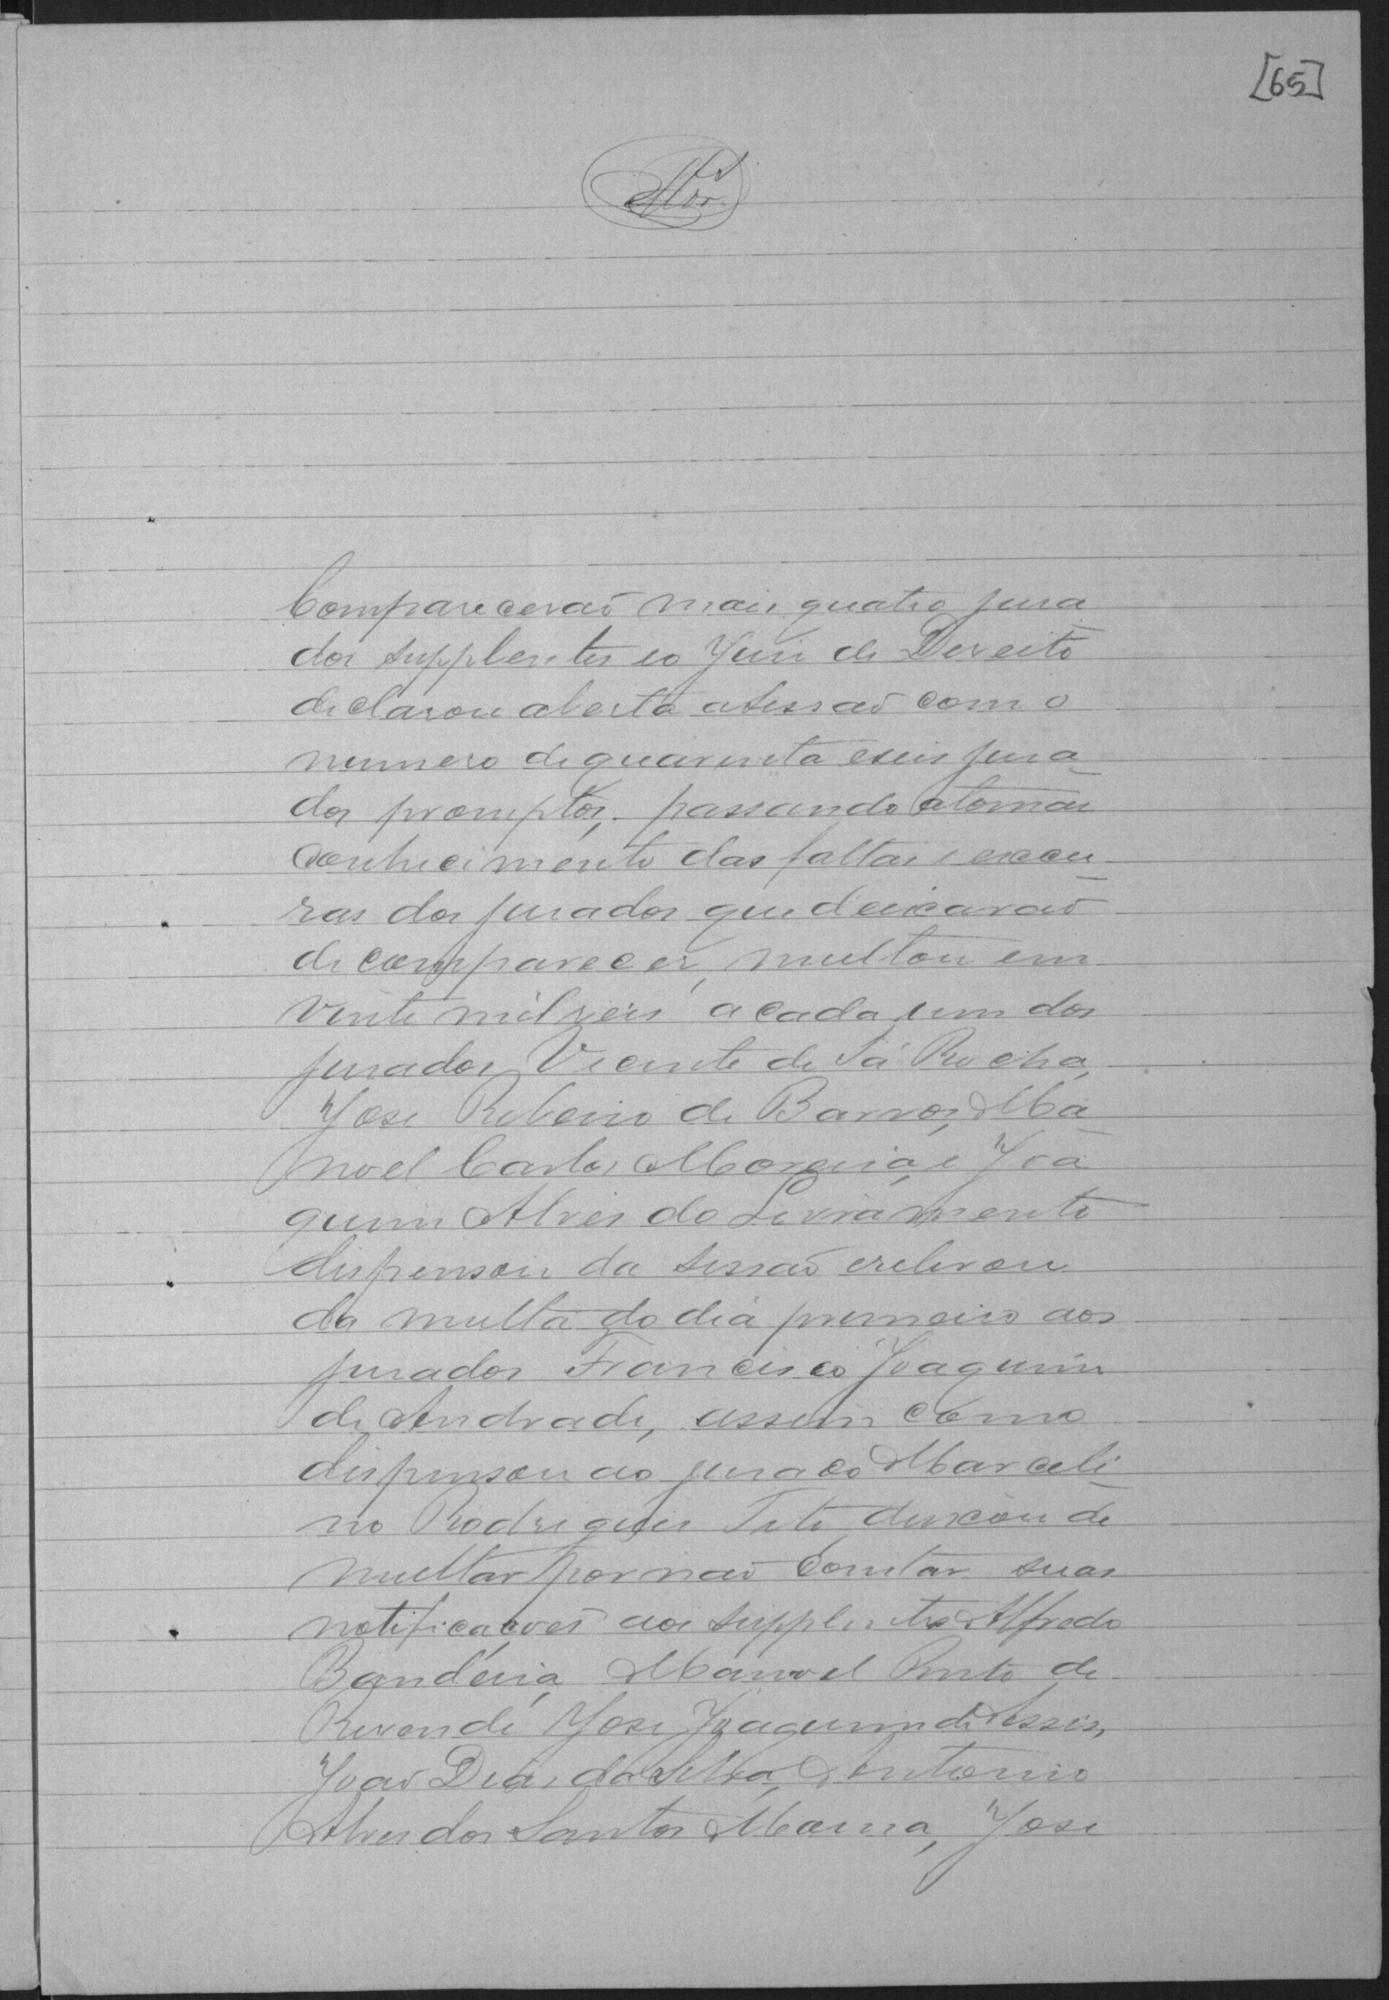 [65]
Compareceraõ mais quatro jura
dos supplentes eo Juis de Dereito
declarou aberta a sessaõ com o
numero de quarenta eseis jura
dos promptos, passando atomar
conhecimento das faltas e escu
zas dos jurados que deixaraõ
de comparecer, multou em
vinte mil reis a cada um dos
jurados Vicente de Sá Rocha,
Jose Ribeiro de Barros, Ma
noel Carlos Moreira, e Joa
quim Alves do Livramento
dispensou da sessaõ erelevou
da multa do dia primeiro aos
jurados Francisco Joaquim
de Andrade, assim como
dispensou ao jurado Marceli
no Rodrigues Teto, deixou de
multar por naõ constar suas
notificaçoes aos supplentes Alfredo
Bandeira, Manoel Pinto de
Resende Jose Joaquim de Assis,
Joaõ Dias da Silva, Antonio
Alves dos Santos, Jose